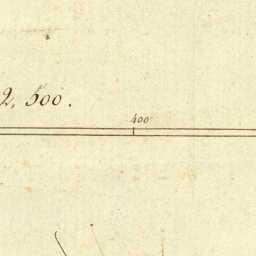 2,500.
400